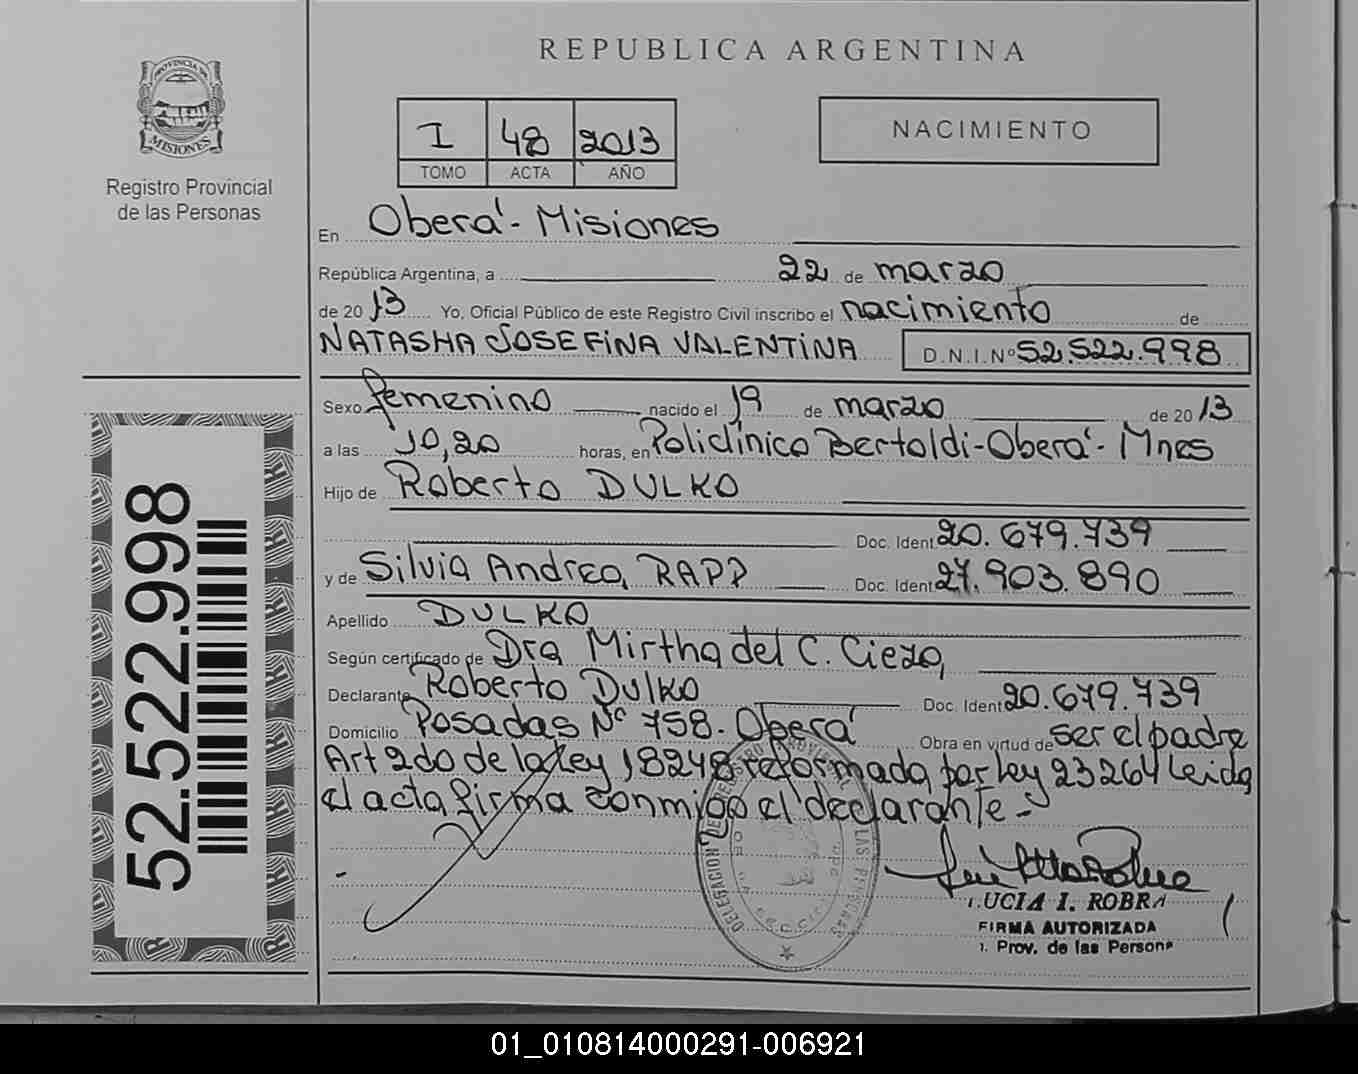 REPUBLICA ARGENTINA
PROVINCIA DE
MISIONES
Registro Provincial
de las Personas
I 48 2013
TOMO ACTA AÑO
NACIMIENTO
En Oberá - Misiones
República Argentina, a 22 de marzo
de 2013 Yo, Oficial Público de este Registro Civil inscribo el nacimiento de
NATASHA JOSEFINA VALENTINA D.N.I.Nº 52.522.998
Sexo femenino nacido el 19 de marzo de 2013
a las 10,20 horas, en Policlínico Bertoldi - Oberá - Mnes
Hijo de Roberto DULKO
Doc. Ident. 20.679.739
y de Silvia Andrea RAPP Doc. Ident. 27.903.890
Apellido DULKO
Según certificado de Dra Mirtha del C. Cieza
Declarante Roberto Dulko Doc. Ident. 20.679.739
Domicilio Posadas Nº 758. Oberá Obra en virtud de ser el padre
Art 2do de la Ley 18248 reformada por Ley 23264 Leida
el acta firma conmigo el declarante -
DELEGACION DEL REGISTRO PROVINCIAL DE LAS PERSONAS
LUCIA I. ROBRA
FIRMA AUTORIZADA
Prov. de las Persona
52.522.998
01_010814000291-006921